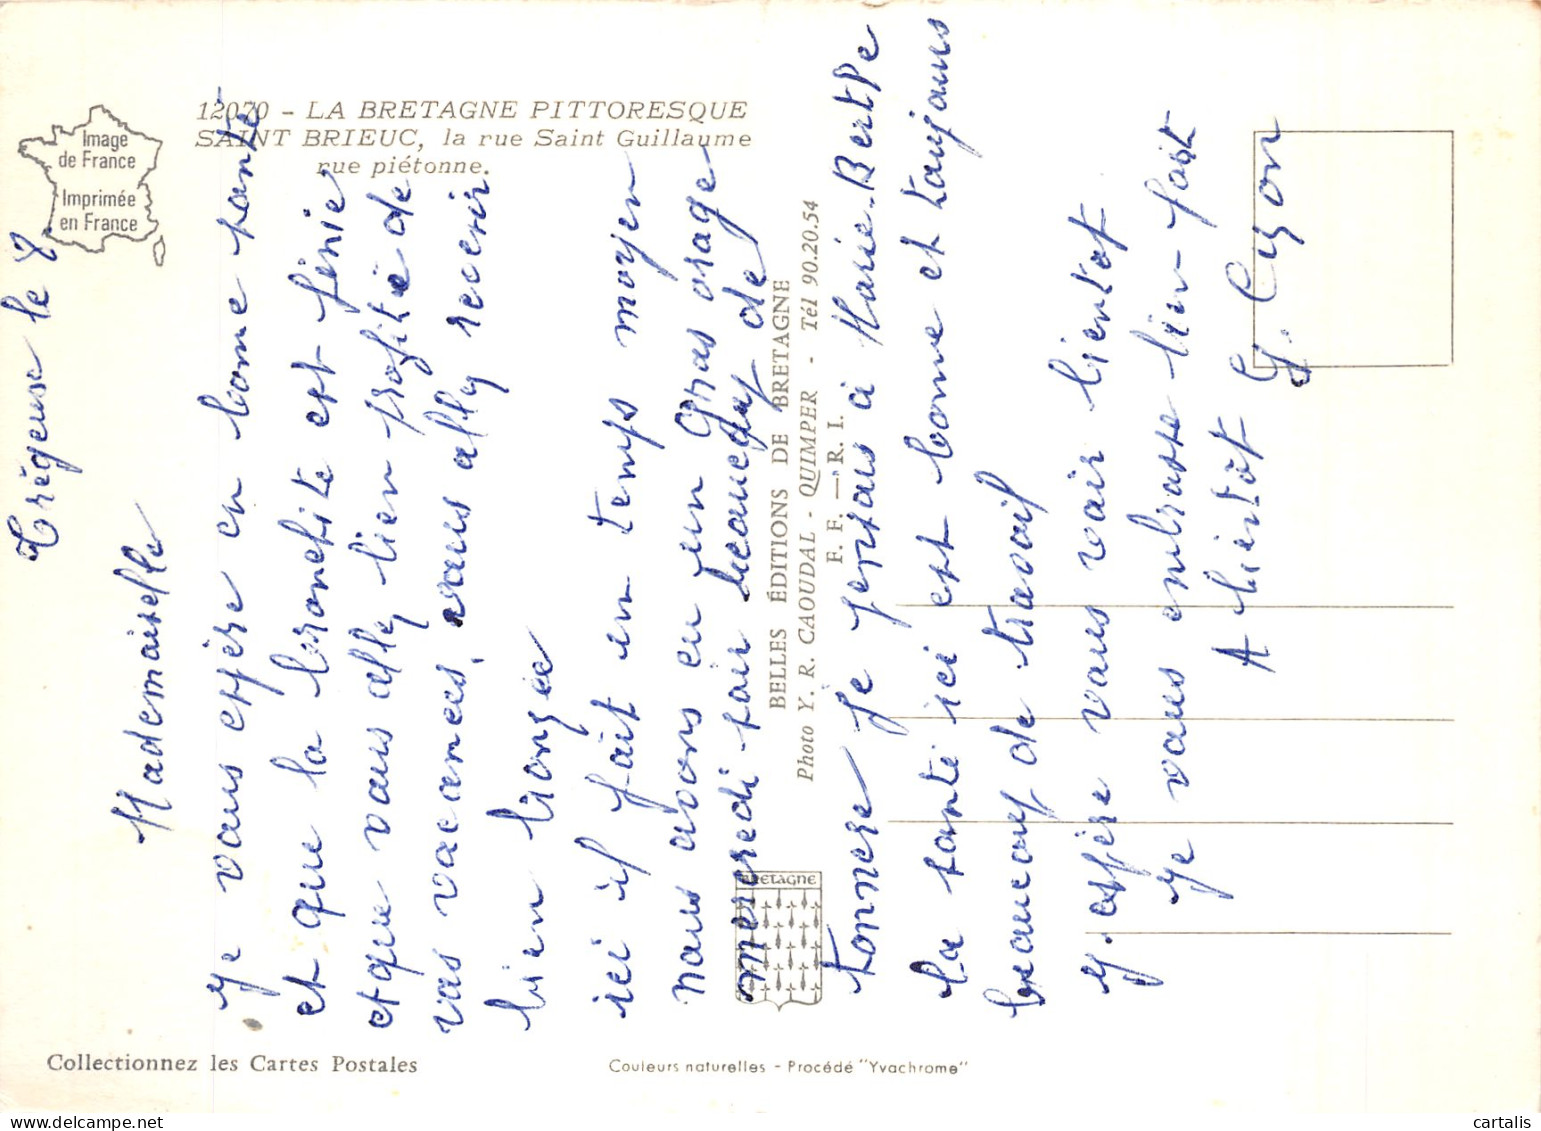 Image
de France
Imprimée
en France
12070 - LA BRETAGNE PITTORESQUE
SAINT BRIEUC, la rue Saint Guillaume
rue piétonne.
BELLES ÉDITIONS DE BRETAGNE
Photo Y. R. CAOUDAL - QUIMPER - Tél 90.20.54
F. F. — R. I.
BRETAGNE
Collectionnez les Cartes Postales
Couleurs naturelles - Procédé "Yvachrome"
Trégueux le 8
Mademoiselle
Je vous espère en bonne santé
et que la bronchite est finie
et que vous allez bien profité de
vos vacances, vous allez revenir
bien bronzée
ici il fait un temps moyen
nous avons eu un gros orage
mercredi soir beaucoup de
tonnere Je pensais à Marie-Berthe
La santé ici est bonne et toujours
beaucoup de travail
J'espère vous voir bientot
Je vous embrasse bien-fort
A bientôt G.
cartalis